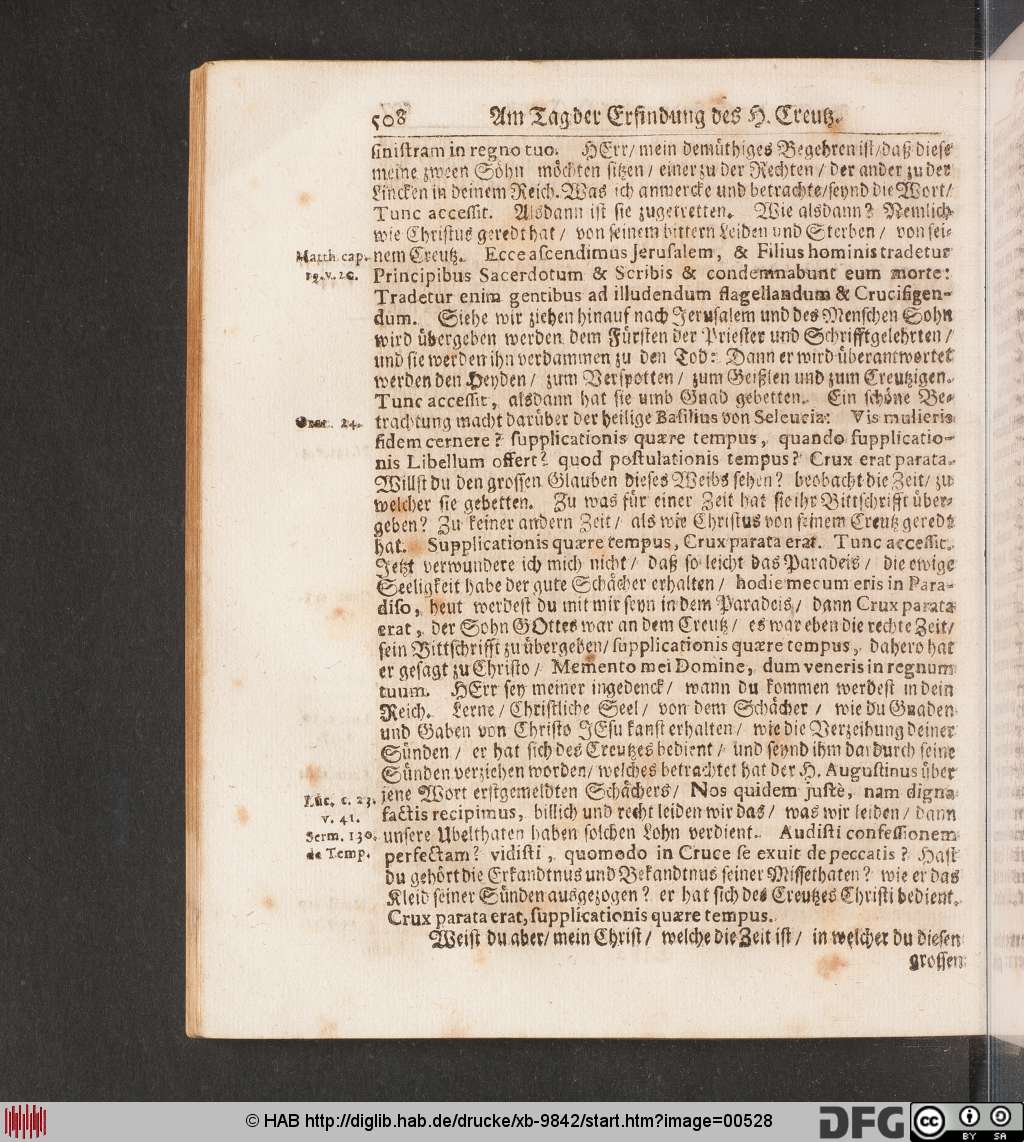 508 Am Tag der Erfindung des H. Creutz.
sinistram in regno tuo. HErr/ mein demüthiges Begehren ist/ daß diese
meine zween Söhn möchten sitzen/ einer zu der Rechten/ der ander zu der
Lincken in deinem Reich. Was ich anmercke und betrachte/ seynd die Wort/
Tunc accessit. Alsdann ist sie zugetretten. Wie alsdann? Nemlich
wie Christus geredt hat/ von seinem bittern Leiden und Sterben/ von sei-
Matth. cap. nem Creutz. Ecce ascendimus Jerusalem, & Filius hominis tradetur
Principibus Sacerdotum & Scribis & condemnabunt eum morte:
Tradetur enim gentibus ad illudendum flagellandum & Crucifigen-
dum. Siehe wir ziehen hinauf nach Jerusalem und des Menschen Sohn
wird übergeben werden dem Fürsten der Priester und Schrifftgelehrten/
und sie werden ihn verdammen zu den Tod: Dann er wird überantwortet
werden den Heyden/ zum Verspotten/ zum Geißlen und zum Creutzigen.
Tunc accessit, alsdann hat sie umb Gnad gebetten. Ein schöne Be-
Orat. 24. trachtung macht darüber der heilige Basilius von Seleucia: Vis mulieris
fidem cernere? supplicationis quære tempus, quando supplicatio-
nis Libellum offert? quod postulationis tempus? Crux erat parata.
Willst du den grossen Glauben dieses Weibs sehen? beobacht die Zeit/ zu
welcher sie gebetten. Zu was für einer Zeit hat sie ihr Bittschrifft über-
geben? Zu keiner andern Zeit/ als wie Christus von seinem Creutz geredt
hat. Supplicationis quære tempus, Crux parata erat. Tunc accessit.
Jetzt verwundere ich mich nicht/ daß so leicht das Paradeis/ die ewige
Seeligkeit habe der gute Schächer erhalten/ hodie mecum eris in Para-
diso, heut werdest du mit mir seyn in dem Paradeis/ dann Crux parata
erat, der Sohn GOttes war an dem Creutz/ es war eben die rechte Zeit/
sein Bittschrifft zu übergeben/ supplicationis quære tempus, dahero hat
er gesagt zu Christo/ Memento mei Domine, dum veneris in regnum
tuum. HErr sey meiner ingedenck/ wann du kommen werdest in dein
Reich. Lerne/ Christliche Seel/ von dem Schächer/ wie du Gnaden
und Gaben von Christo JEsu kanst erhalten/ wie die Verzeihung deiner
Sünden/ er hat sich des Creutzes bedient/ und seynd ihm dardurch seine
Sünden verziehen worden/ welches betrachtet hat der H. Augustinus über
Luc. c. 23. jene Wort erstgemeldten Schächers/ Nos quidem justè, nam digna
v. 41. factis recipimus, billich und recht leiden wir das/ was wir leiden/ dann
Serm. 130. unsere Ubelthaten haben solchen Lohn verdient. Audisti confessionem
de Temp. perfectam? vidisti, quomodo in Cruce se exuit de peccatis? Hast
du gehört die Erkandtnus und Bekandtnus seiner Missethaten? wie er das
Kleid seiner Sünden ausgezogen? er hat sich des Creutzes Christi bedient.
Crux parata erat, supplicationis quære tempus.
Weist du aber/ mein Christ/ welche die Zeit ist/ in welcher du diesen
grossen
© HAB http://diglib.hab.de/drucke/xb-9842/start.htm?image=00528
DFG
cc
BY SA